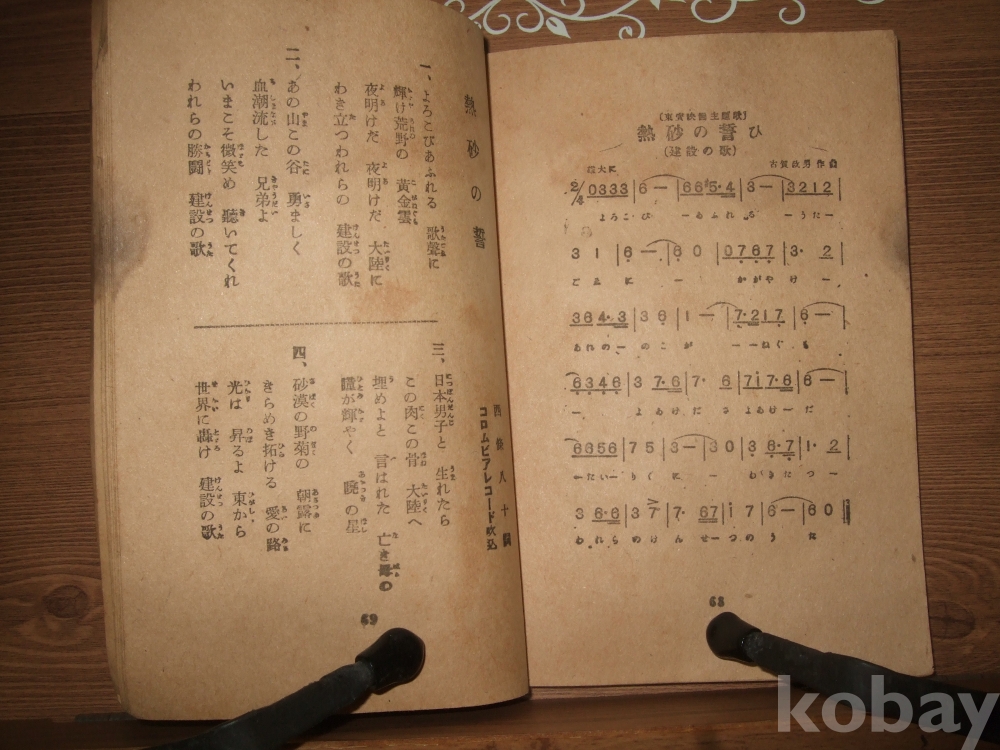 〔東寳映畫主題歌〕
熱砂の誓ひ
(建設の歌)
古賀政男作曲
2/4 0333|6ー|665·4|3ー|3212|
よろこび ーあふれる ーうたー
31|6ー|60|0767|3·2|
ごゑにー かがやけー
364·3|36|1ー|7·217|6ー|
あれのーのこが ーーねぐも
6346|37·6|7·6|717·6|6ー|
ー よあけだ さよあけーだ
6656|75|3ー|30|36·7|1·2|
ーたいーりくにー わきたつー
36·6|37|7·67|i7|6ー|60‖
われらのけんせーつのうた
68
熱砂の誓
西條八十詞
コロムビアレコード吹込
一、よろこびあふれる 歌聲に
輝け荒野の 黄金雲
夜明けだ 夜明けだ 大陸に
わき立つわれらの 建設の歌
二、あの山この谷 勇ましく
血潮流した 兄弟よ
いまこそ微笑め 聽いてくれ
われらの勝鬪 建設の歌
三、日本男子と 生れたら
この肉この骨 大陸へ
埋めよと 言はれた 亡き母の
瞳が輝やく 曉の星
四、砂漠の野菊の 朝露に
きらめき拓ける 愛の路
光は 昇るよ 東から
世界に轟け 建設の歌
69
kobay